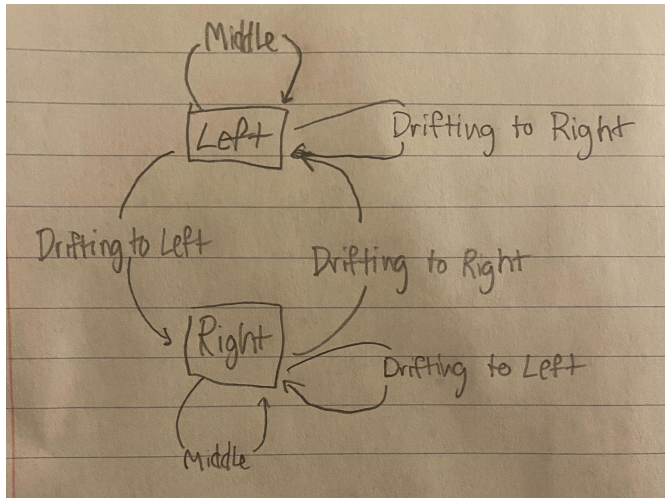 Middle
Left
Drifting to Right
Drifting to Left
Drifting to Right
Right
Drifting to Left
Middle